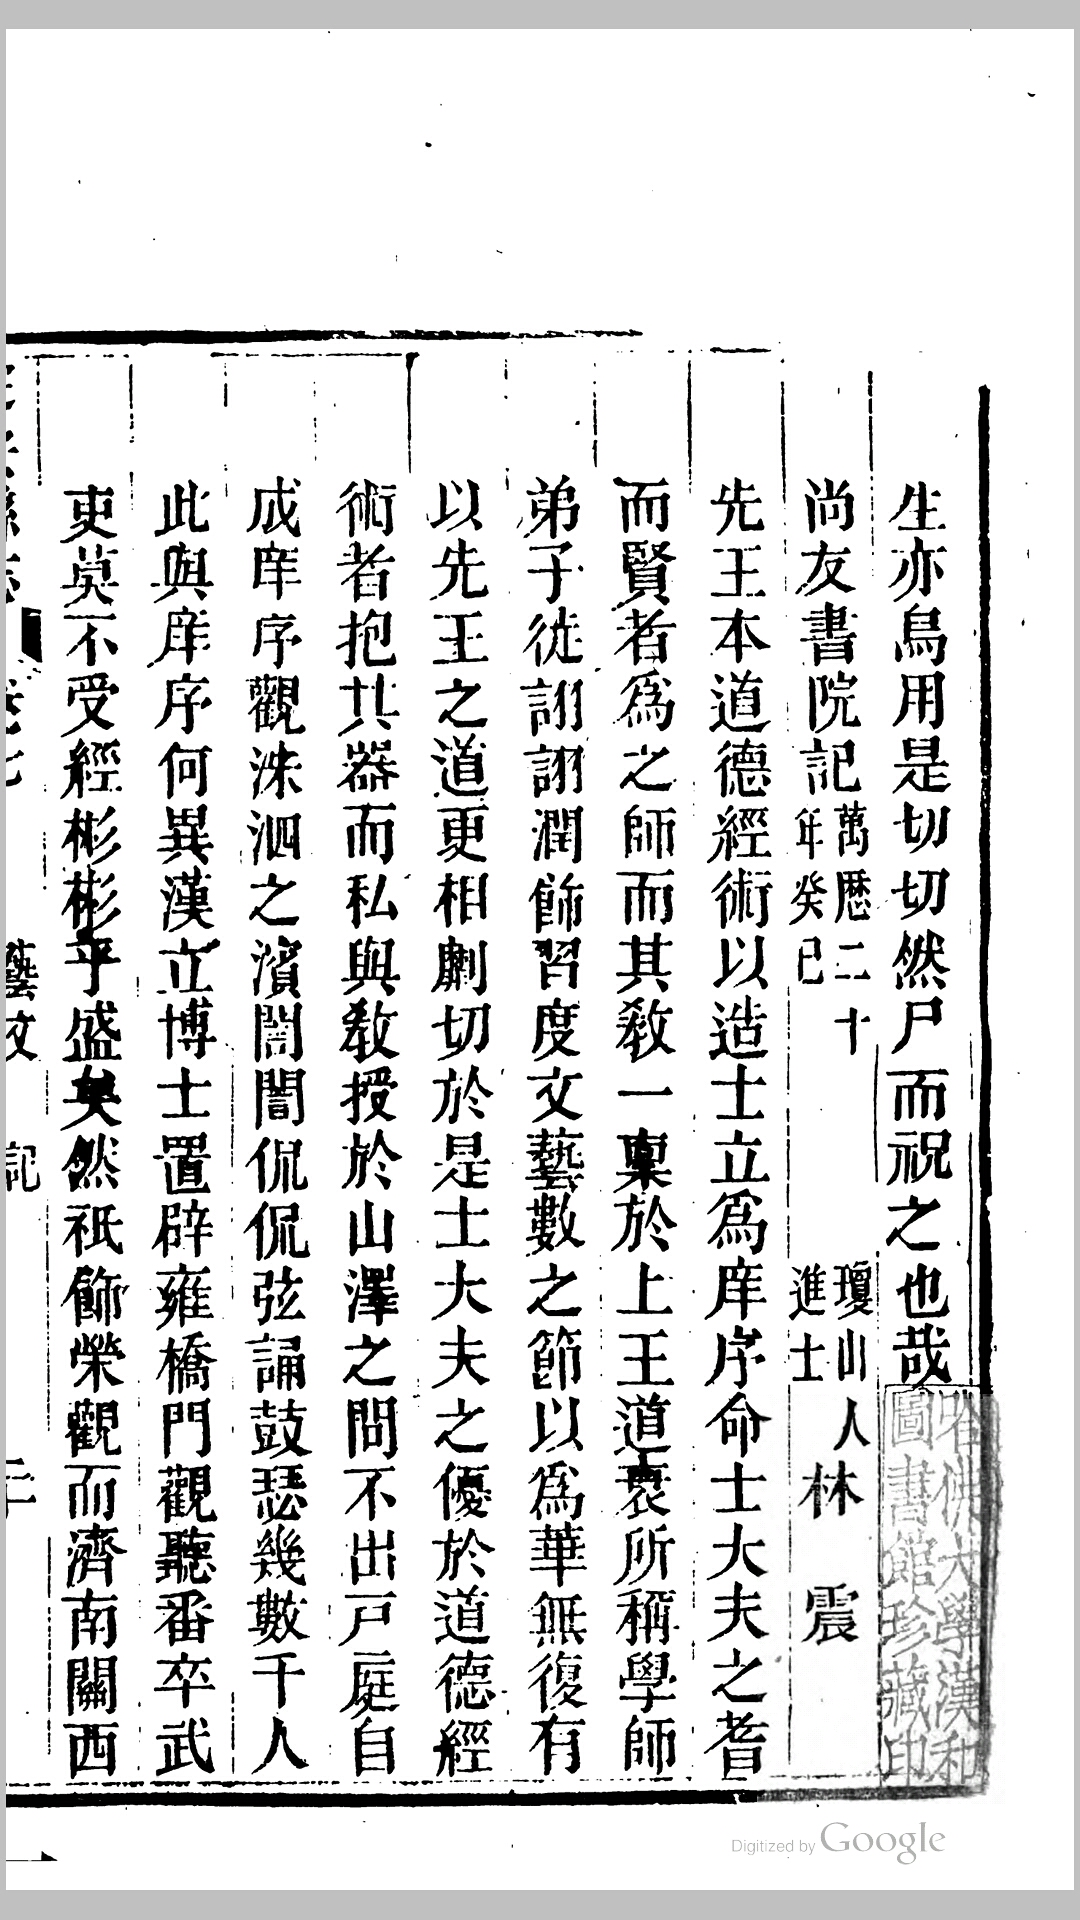 生亦烏用是切切然尸而祝之也哉
尚友書院記萬曆二十年癸巳 瓊山人進士林震
先王本道德經術以造士立爲庠序命士大夫之耆
而賢者爲之師而其教一稟於上王道衰所稱學師
弟子徒詡詡潤飾習度文藝數之節以爲華無復有
以先王之道更相劘切於是士大夫之優於道德經
術者抱其器而私與教授於山澤之間不出戸庭自
成庠序觀洙泗之濱誾誾侃侃弦誦鼓瑟幾數千人
此與庠序何異漢立博士置辟雍橋門觀聽番卒武
吏莫不受經彬彬乎盛矣然祇飾榮觀而濟南關西
藝文 記 二
哈佛大學漢和圖書館珍藏印
Digitized by Google